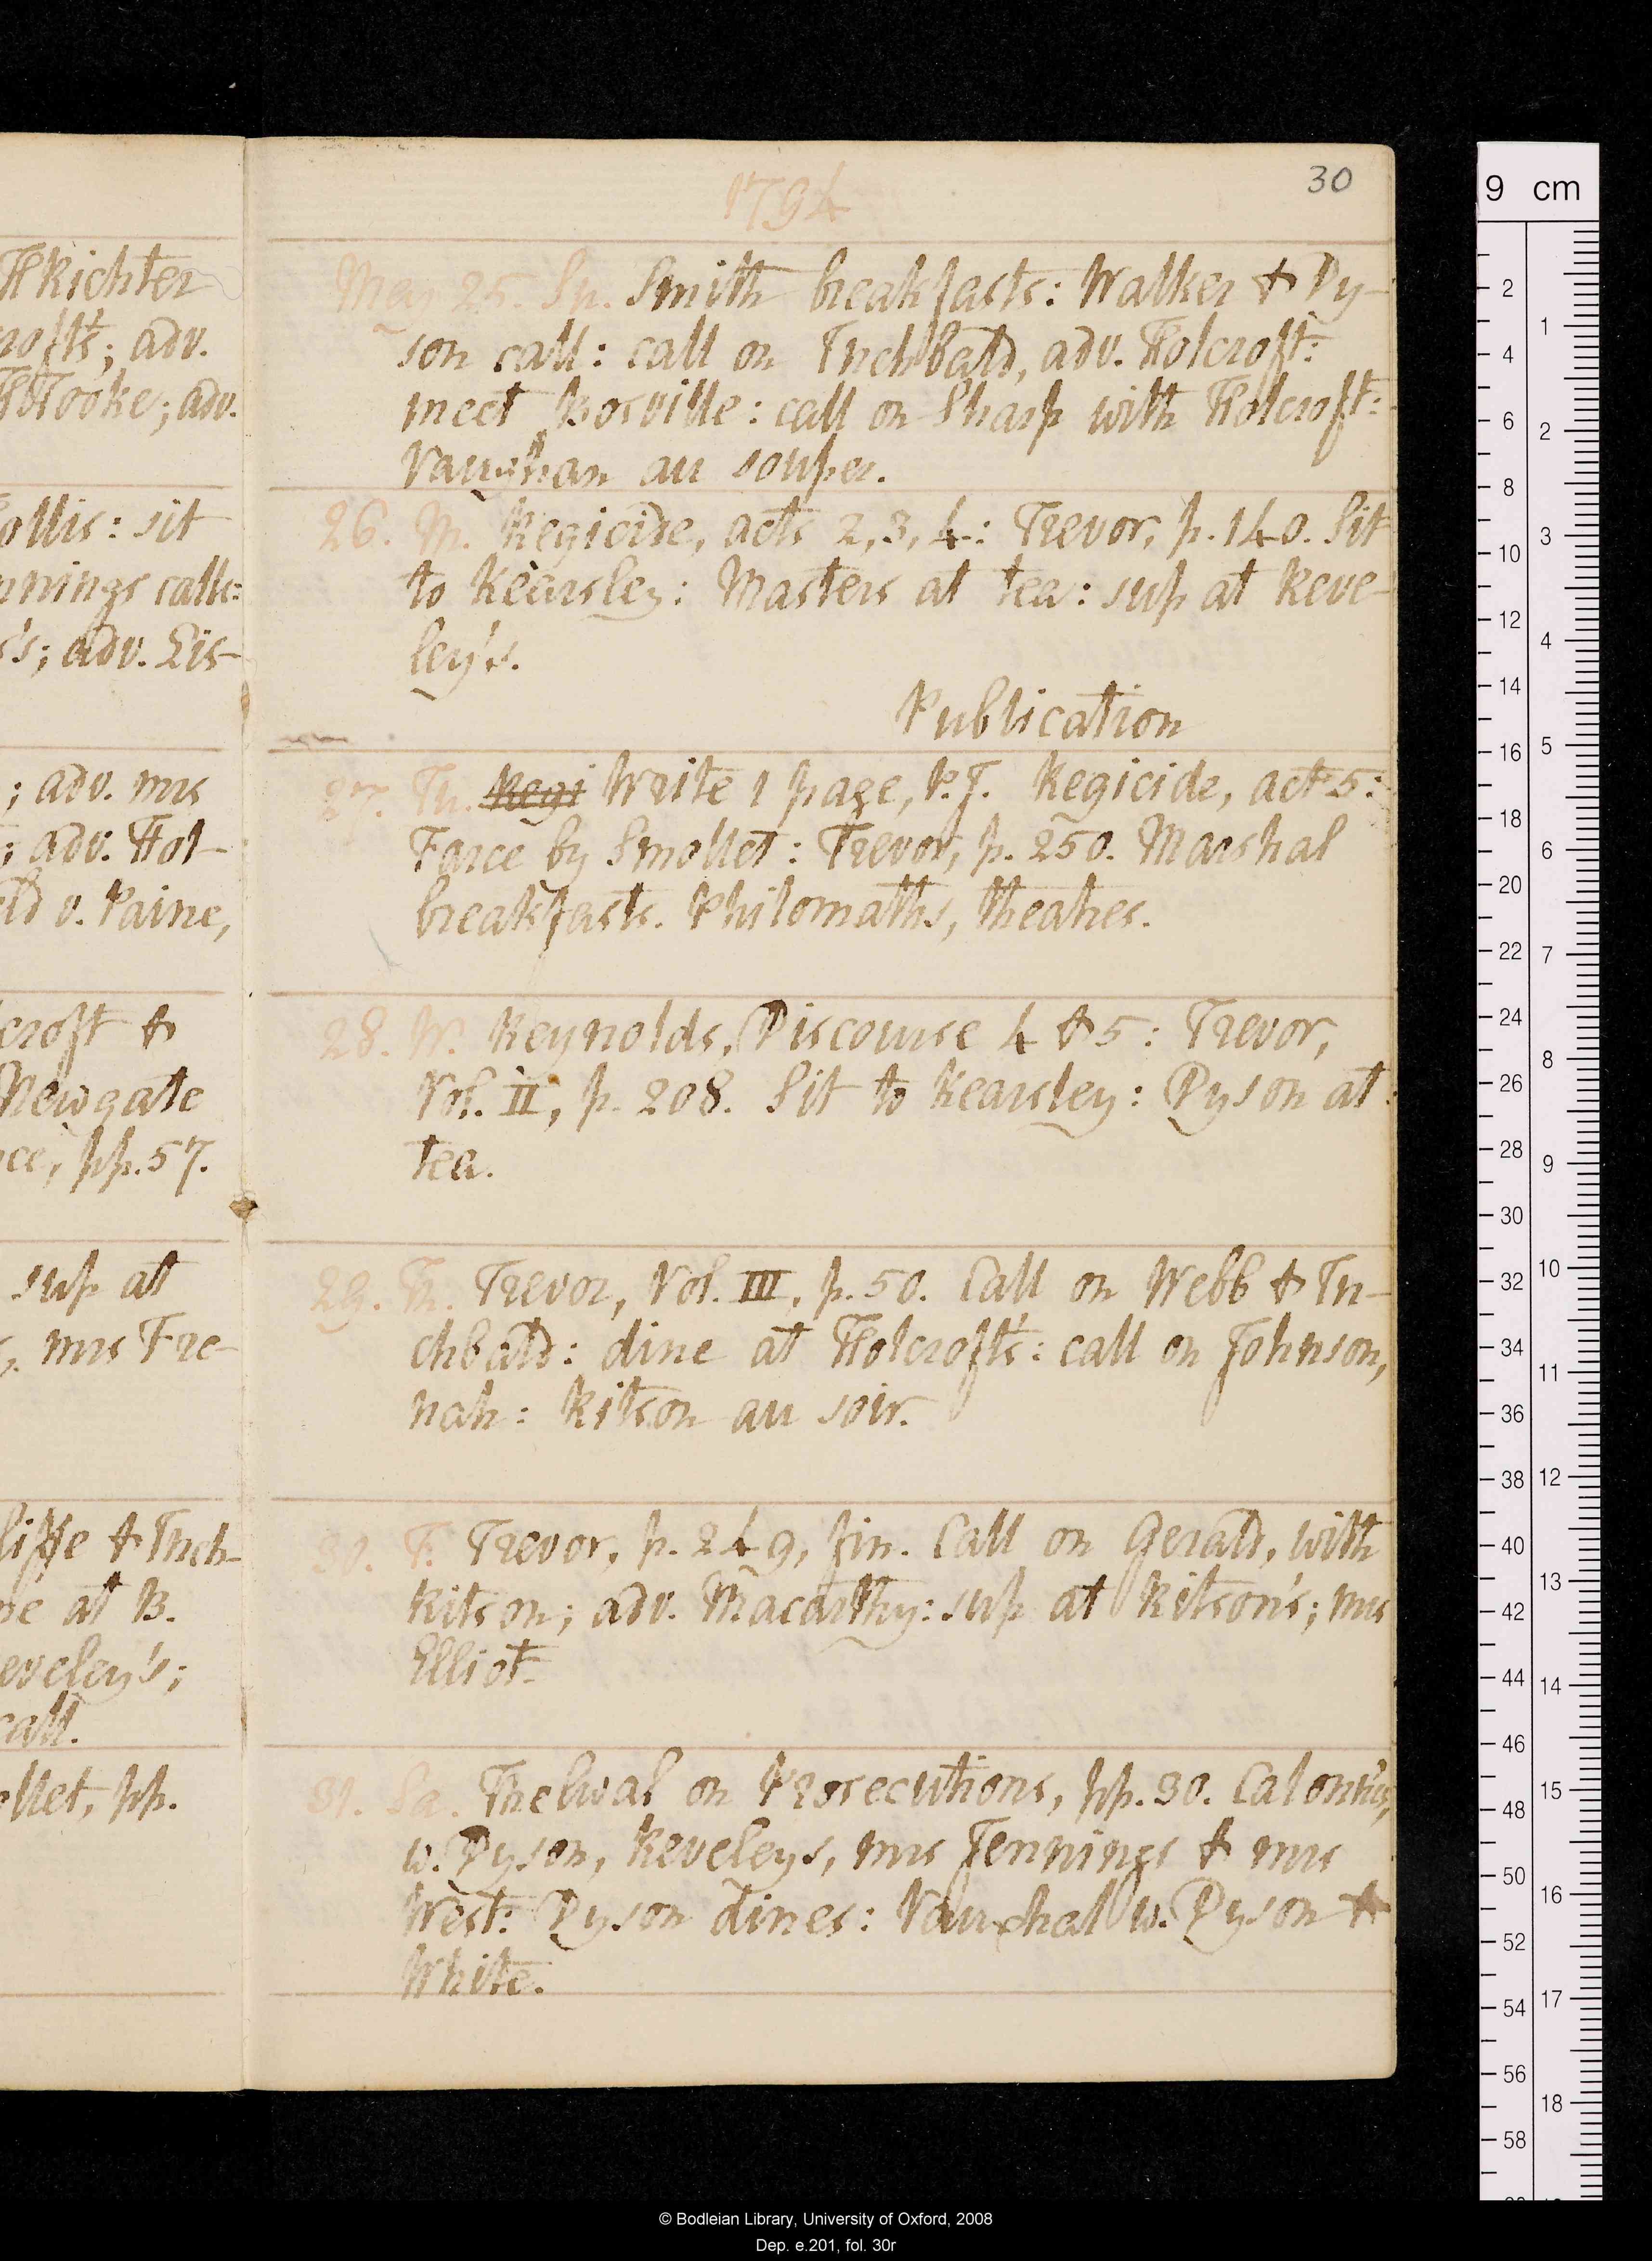 H Richter
crofts; adv.
H Tooke; adv.
ollis: sit
nnings calls:
's; adv. Lis-
; adv. mrs
; adv. Hol-
ld v. Paine,
croft &
Newgate
ce, pp. 57.
sup at
mrs Fre-
liffe & Inch-
ne at B.
eveley's;
call.
llet, pp.
30
1794
May 25. Su. Smith breakfasts: Walker & Dy-
son call: call on Inchbald, adv. Holcroft:
meet Bosville: call on Sharp with Holcroft:
Vaughan au souper.
26. M. Regicide, acts 2, 3, 4: Trevor, p. 140. Sit
to Kearsley: Masters at tea: sup at Reve-
ley's.
Publication
27. Tu. Regi Write 1 page, P. J. Regicide, act 5:
Farce by Smollet: Trevor, p. 250. Marshal
breakfasts. Philomaths, theatres.
28. W. Reynolds, Discourse 4 & 5: Trevor,
Vol. II, p. 208. Sit to Kearsley: Dyson at
tea.
29. Th. Trevor, Vol. III, p. 50. Call on Webb & In-
chbald: dine at Holcroft's: call on Johnson,
nah: Ritson au soir.
30. F. Trevor, p. 249, fin. Call on Gerald, with
Ritson; adv. Macarthy: sup at Ritson's; mrs
Elliot.
31. Sa. Thelwal on Prosecutions, pp. 30. Calonne's,
w. Dyson, Reveleys, mrs Jennings & mrs
West: Dyson dines: Vauxhal w. Dyson &
White.
9 cm
2
4
6
8
10
12
14
16
18
20
22
24
26
28
30
32
34
36
38
40
42
44
46
48
50
52
54
56
58
1
2
3
4
5
6
7
8
9
10
11
12
13
14
15
16
17
18
© Bodleian Library, University of Oxford, 2008
Dep. e.201, fol. 30r